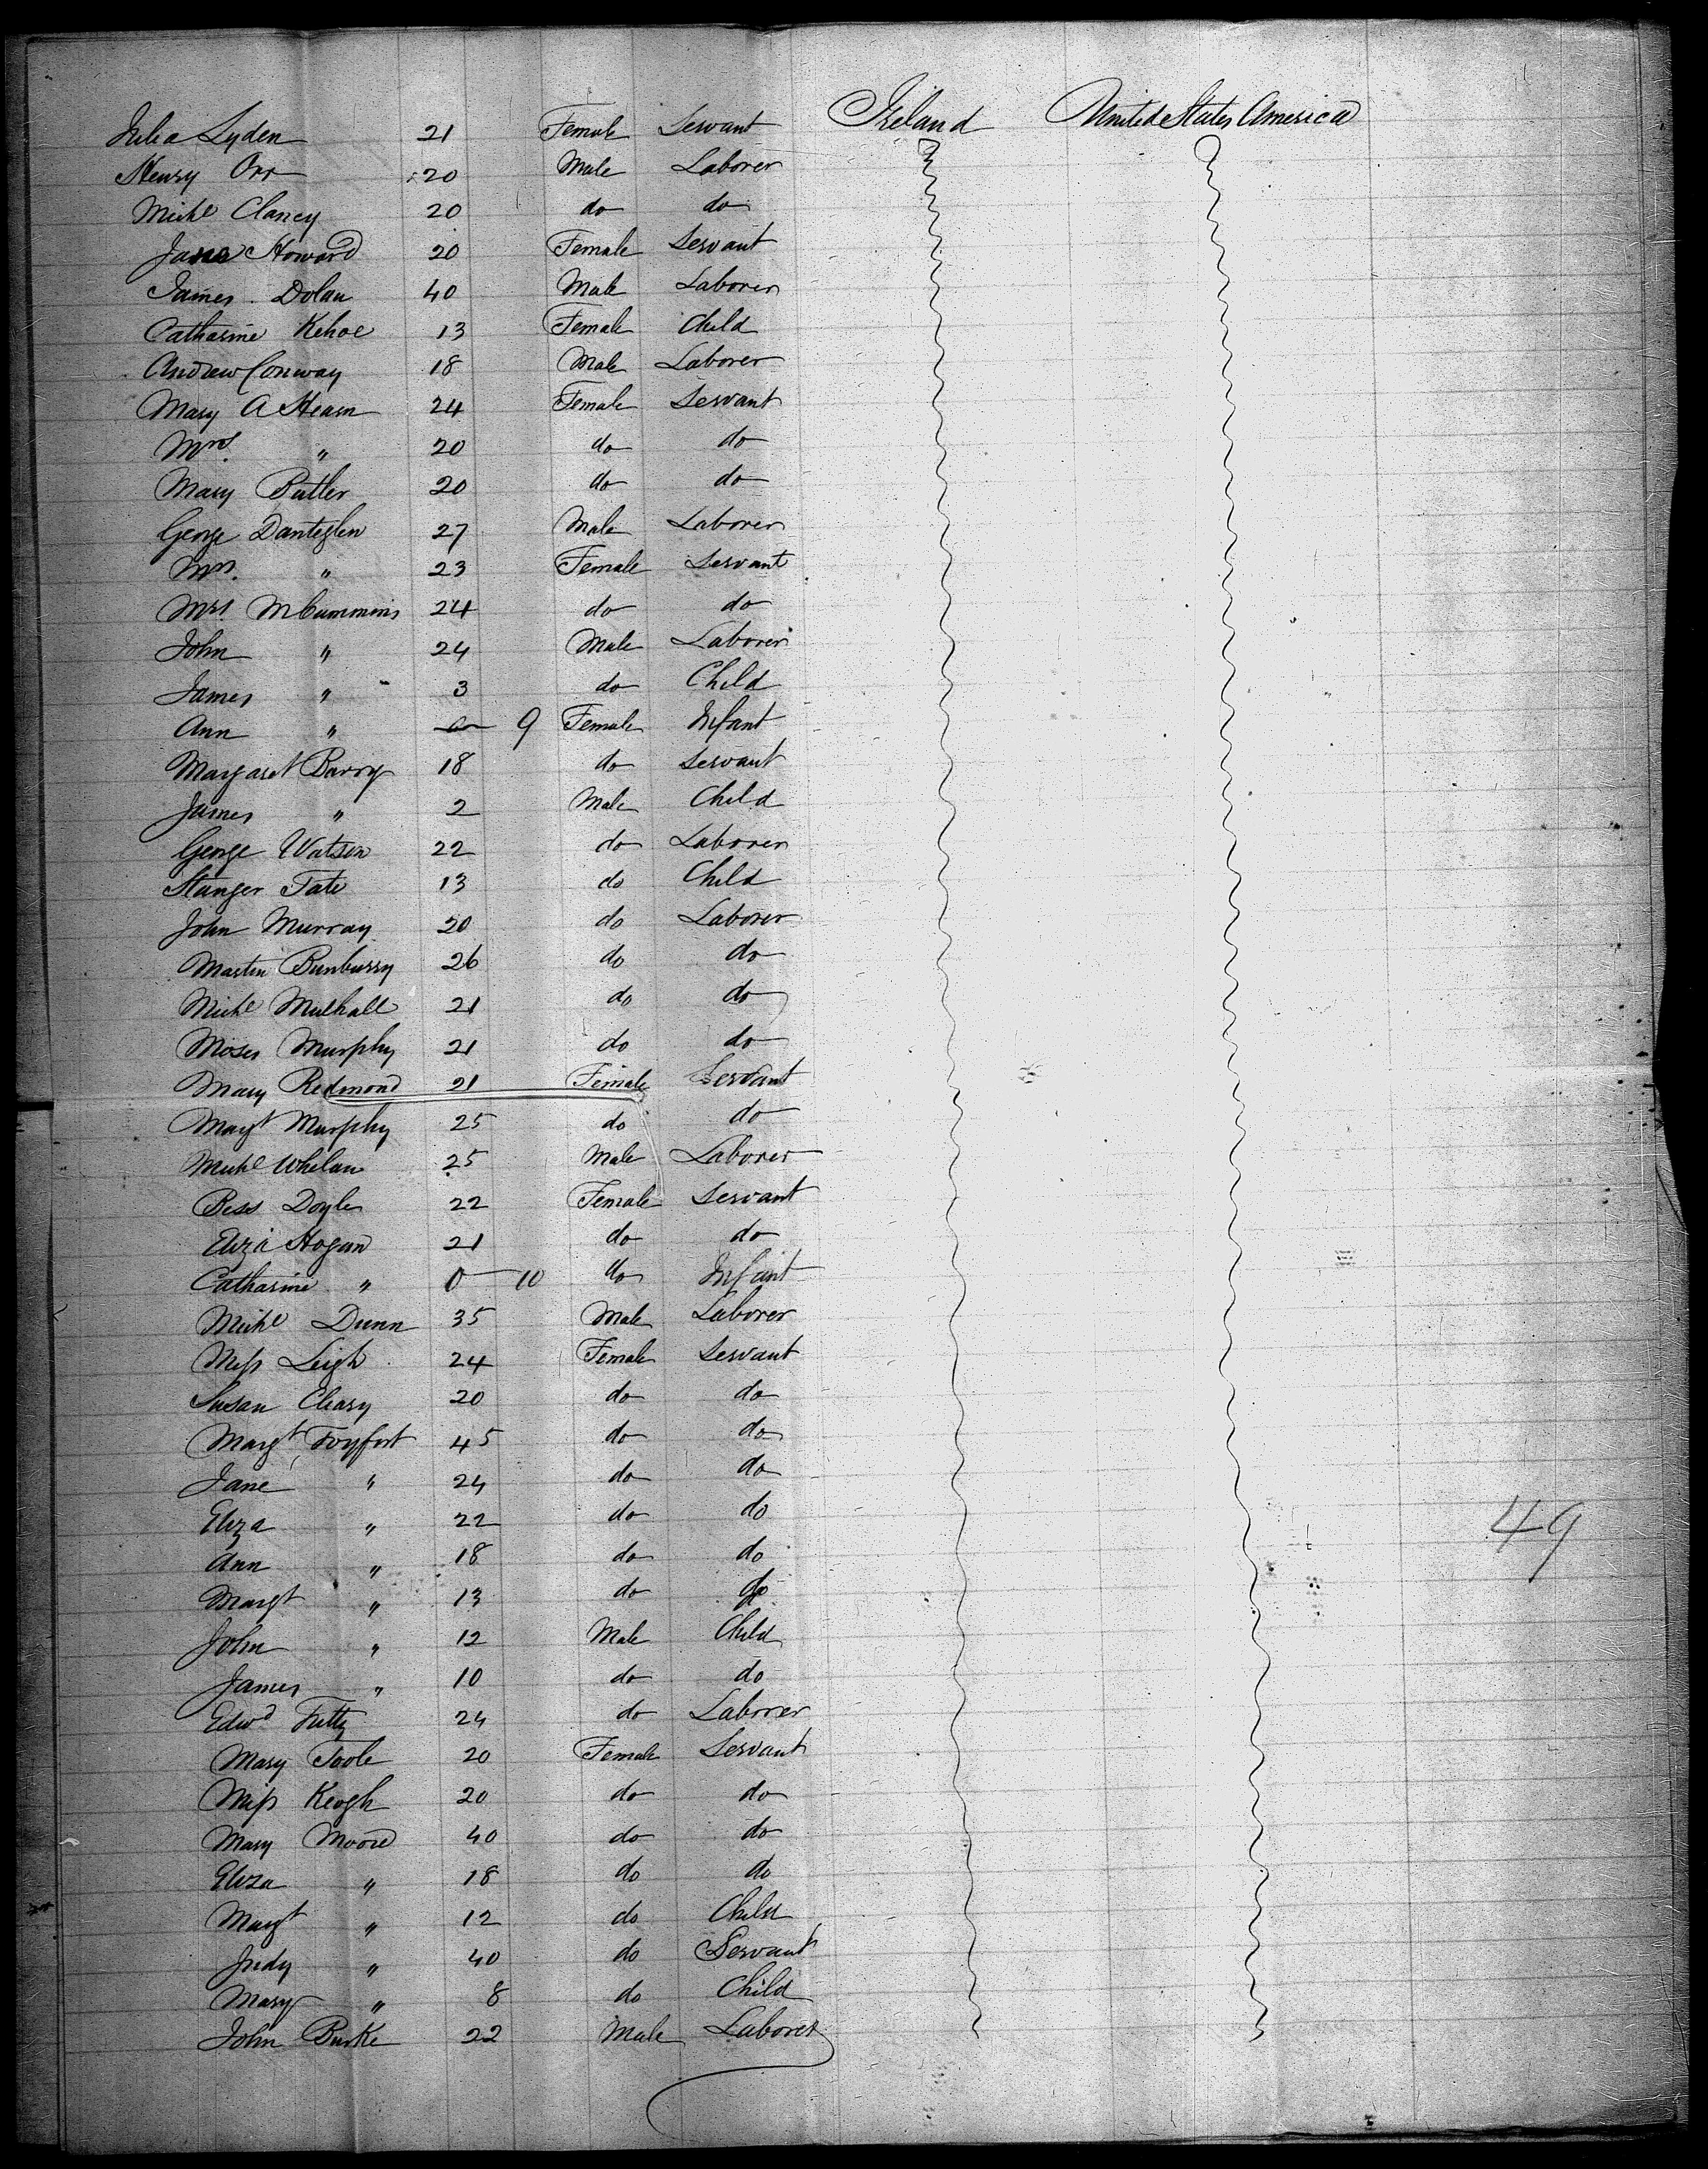 Julia Lyden 21 Female Servant Ireland United States America
Henry Orr 20 Male Laborer
Michl Clancy 20 do do
Jane Howard 20 Female Servant
James Dolan 40 Male Laborer
Catharine Kehoe 13 Female Child
Andrew Conway 18 Male Laborer
Mary A Hearn 24 Female Servant
Mrs. " 20 do do
Mary Butler 20 do do
George 27 Male Laborer
Mrs. " 23 Female Servant
Mrs. McCummins 24 do do
John " 24 Male Laborer
James " 3 do Child
Ann " 9 Female Infant
Margaret Barry 18 do Servant
James " 2 Male Child
George Watson 22 do Laborer
Stanger Tate 13 do Child
John Murray 20 do Laborer
Martin Bunburry 26 do do
Michl Mulhall 21 do do
Moses Murphy 21 do do
Mary Redmond 21 Female Servant
Margt Murphy 25 do do
Michl Whelan 25 Male Laborer
Bess Doyle 22 Female Servant
Eliza Hogan 21 do do
Catharine " 0 10 do Infant
Michl Dunn 35 Male Laborer
Miss Leigh 24 Female Servant
Susan Cleary 20 do do
Margt 45 do do
Jane " 24 do do
Eliza " 22 do do
49
Ann " 18 do do
Margt " 13 do do
John " 12 Male Child
James " 10 do do
Edwd 24 do Laborer
Mary Toole 20 Female Servant
Miss Keogh 20 do do
Mary Moore 40 do do
Eliza " 18 do do
Margt " 12 do Child
Judy " 40 do Servant
Mary " 8 do Child
John Burke 22 Male Laborer